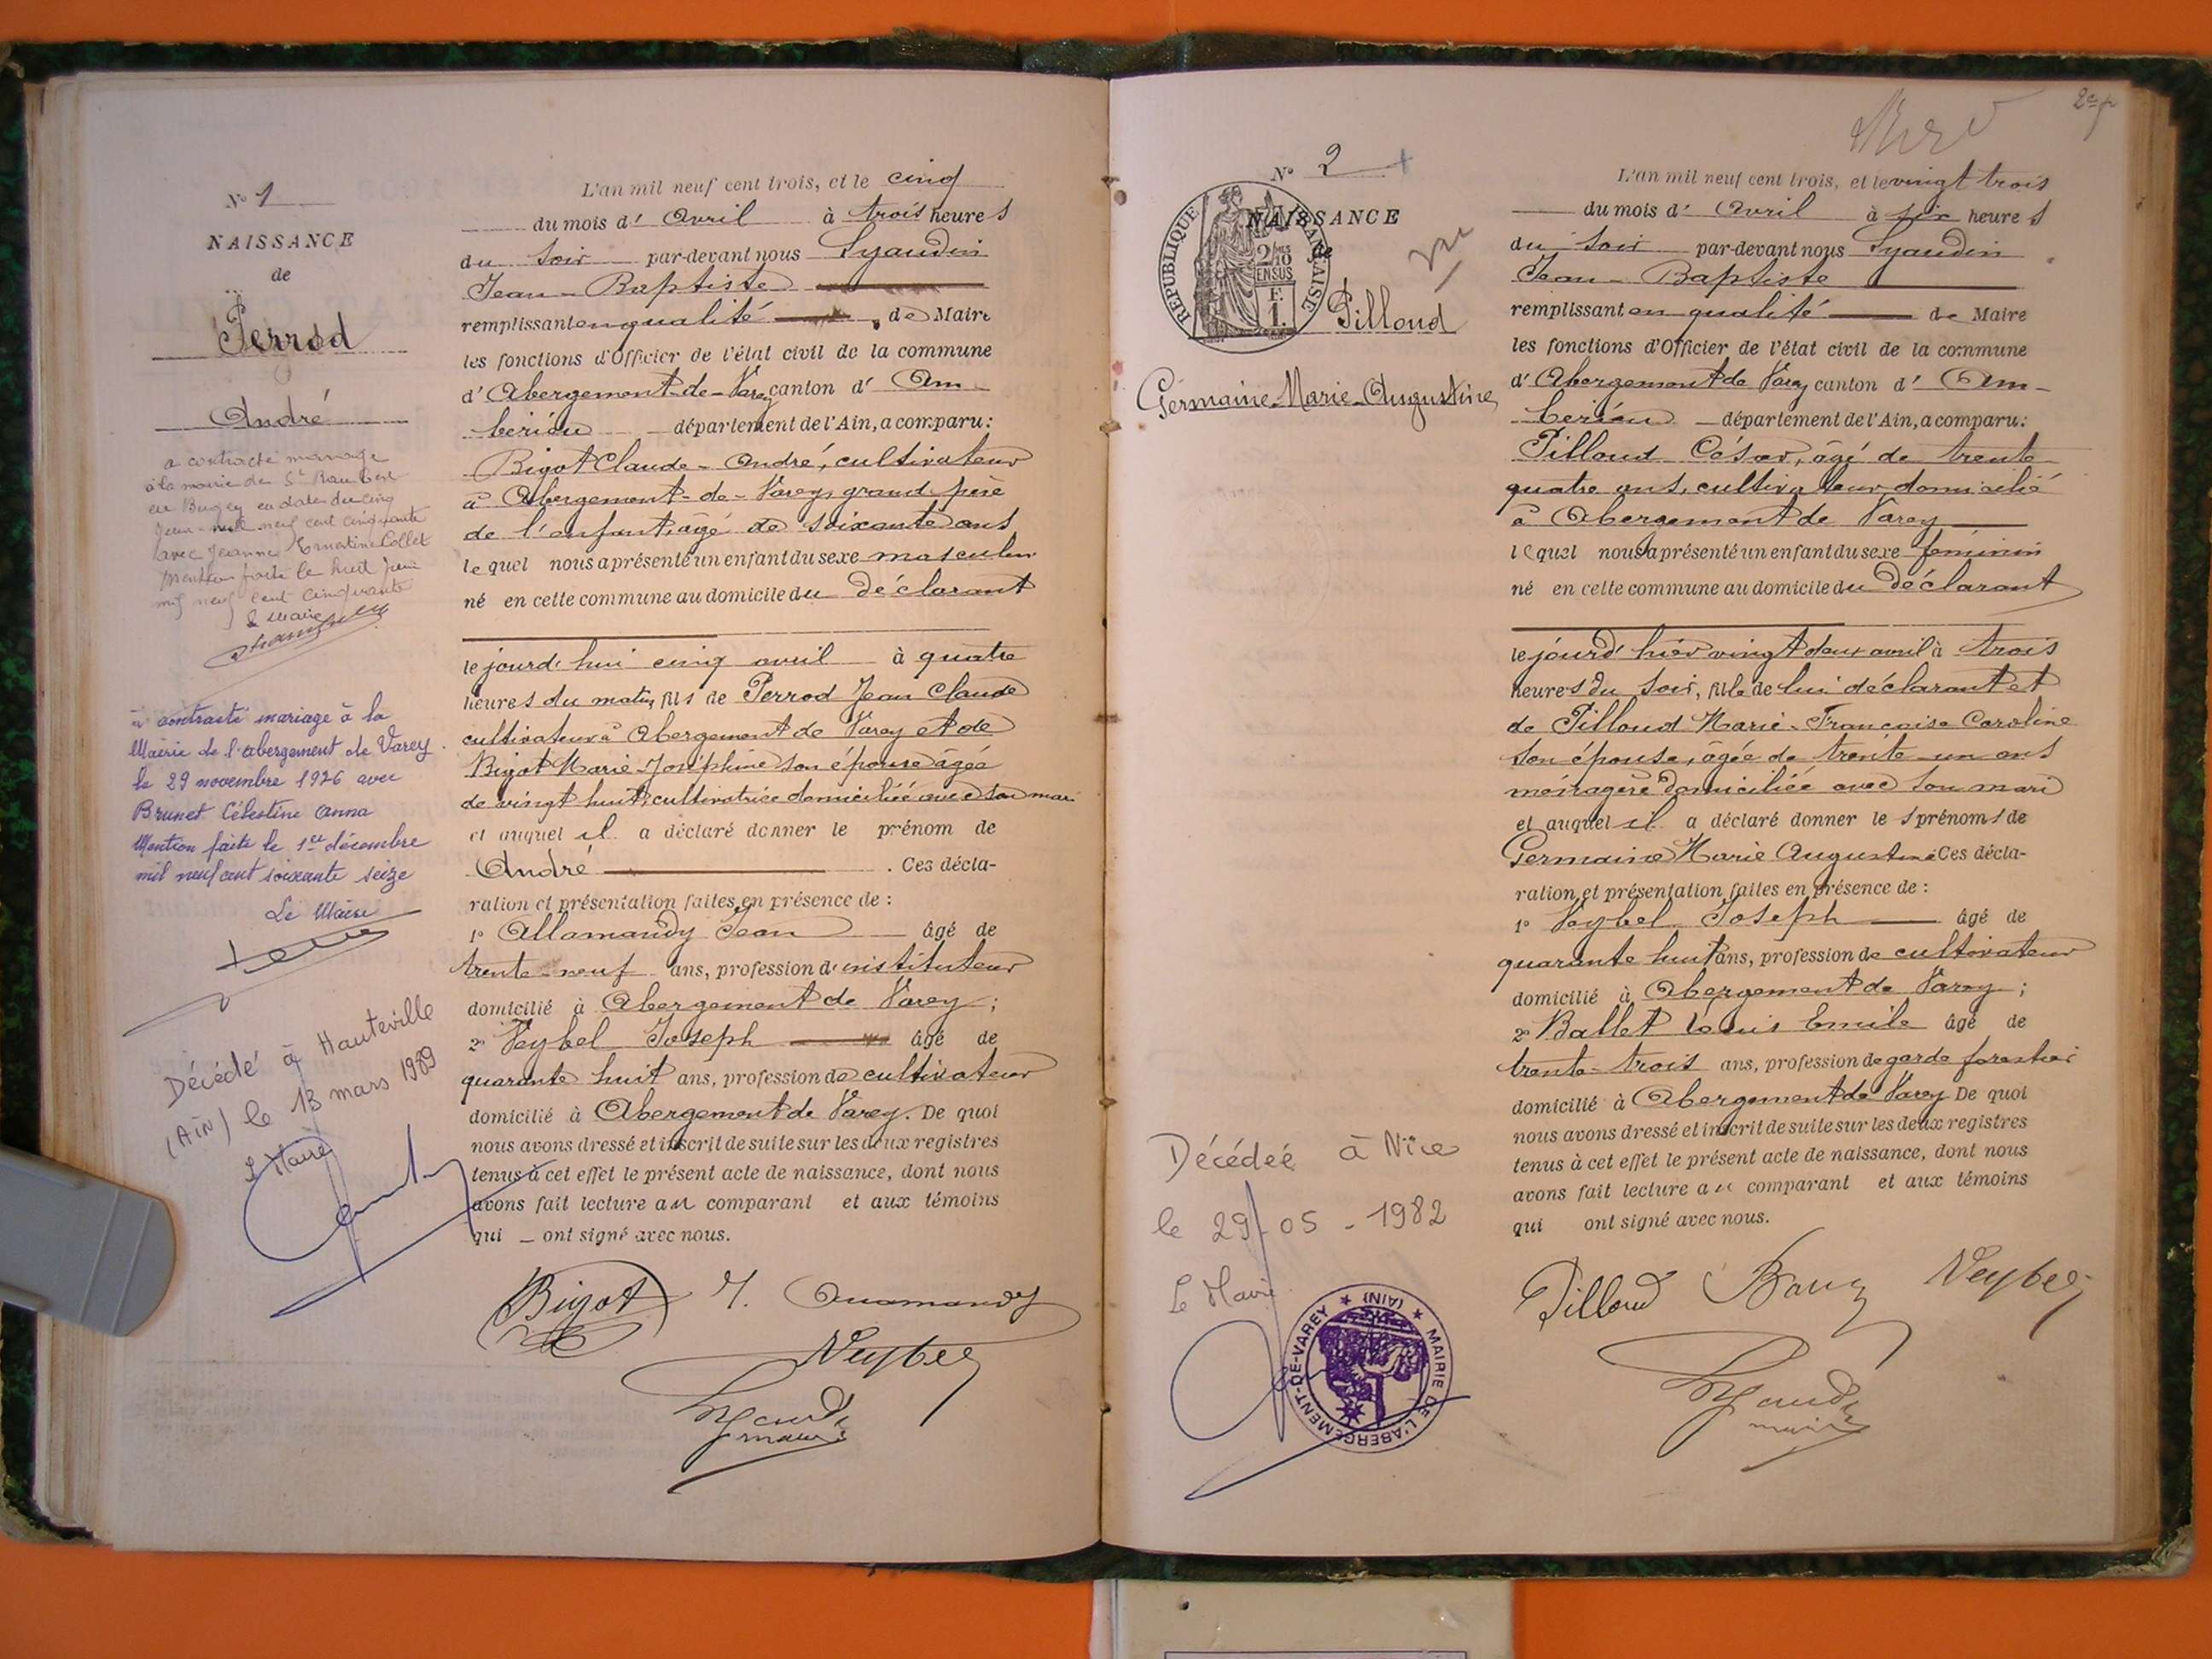 N° 1
NAISSANCE
de
Perrod
André
a contracté mariage
à la mairie de St Rambert
en Bugey en date du cinq
Juin mil neuf cent cinquante
avec Jeanne Ernestine Collet
Mention faite le huit juin
mil neuf cent cinquante
Le Maire
a contracté mariage à la
Mairie de l'abergement de Varey
le 29 novembre 1926 avec
Brunet Célestine Anna
Mention faite le 1er décembre
mil neuf cent soixante seize
Le Maire
Décédé à Hauteville
(AIN) le 13 mars 1989
Le Maire
L'an mil neuf cent trois, et le cinq
du mois d' Avril à trois heures
du soir par-devant nous Lyaudin
Jean-Baptiste
remplissant en qualité de Maire
les fonctions d'Officier de l'état civil de la commune
d'Abergement-de-Varey canton d' Am-
bérieu département de l'Ain, a comparu:
Bigot Claude-André, cultivateur
à Abergement-de-Varey, grand père
de l'enfant, âgé de soixante ans
lequel nous a présenté un enfant du sexe masculin
né en cette commune au domicile du déclarant
le jourd'hui cinq avril à quatre
heures du matin, fils de Perrod Jean Claude
cultivateur à Abergement de Varey et de
Bigot Marie-Joséphine son épouse âgée
de vingt huit, cultivatrice domiciliée avec son mari
et auquel il a déclaré donner le prénom de
André. Ces décla-
ration et présentation faites en présence de :
1° Allamandy Jean âgé de
trente-neuf ans, profession d'instituteur
domicilié à Abergement de Varey ;
2° Veybel Joseph âgé de
quarante huit ans, profession de cultivateur
domicilié à Abergement de Varey. De quoi
nous avons dressé et inscrit de suite sur les deux registres
tenus à cet effet le présent acte de naissance, dont nous
avons fait lecture au comparant et aux témoins
qui ont signé avec nous.
Bigot J. Allamandy
Veybel
Lyaudin
maire
2e f
N° 2
NAISSANCE
de
REPUBLIQUE FRANÇAISE
2/10 EN SUS
1 F.
Pilloud
Germaine-Marie-Augustine
Décédée à Nice
le 29-05-1982
Le Maire
MAIRIE DE L'ABERGEMENT-DE-VAREY
(AIN)
L'an mil neuf cent trois, et le vingt trois
du mois d' Avril à six heures
du soir par-devant nous Lyaudin
Jean-Baptiste
remplissant en qualité de Maire
les fonctions d'Officier de l'état civil de la commune
d'Abergement de Varey canton d' Am-
bérieu département de l'Ain, a comparu:
Pilloud César, âgé de trente
quatre ans, cultivateur domicilié
à Abergement de Varey
lequel nous a présenté un enfant du sexe féminin
né en cette commune au domicile du déclarant
le jourd'hier vingt deux avril à trois
heures du soir, fille de lui déclarant et
de Pilloud Marie-Françoise Caroline
son épouse, âgée de trente-un ans
ménagère domiciliée avec son mari
et auquel il a déclaré donner les prénoms de
Germaine Marie Augustine Ces décla-
ration et présentation faites en présence de :
1° Veybel Joseph âgé de
quarante huit ans, profession de cultivateur
domicilié à Abergement de Varey ;
2° Ballet Louis Emile âgé de
trente-trois ans, profession de garde forestier
domicilié à Abergement de Varey De quoi
nous avons dressé et inscrit de suite sur les deux registres
tenus à cet effet le présent acte de naissance, dont nous
avons fait lecture au comparant et aux témoins
qui ont signé avec nous.
Pilloud Veybel
Lyaudin
maire